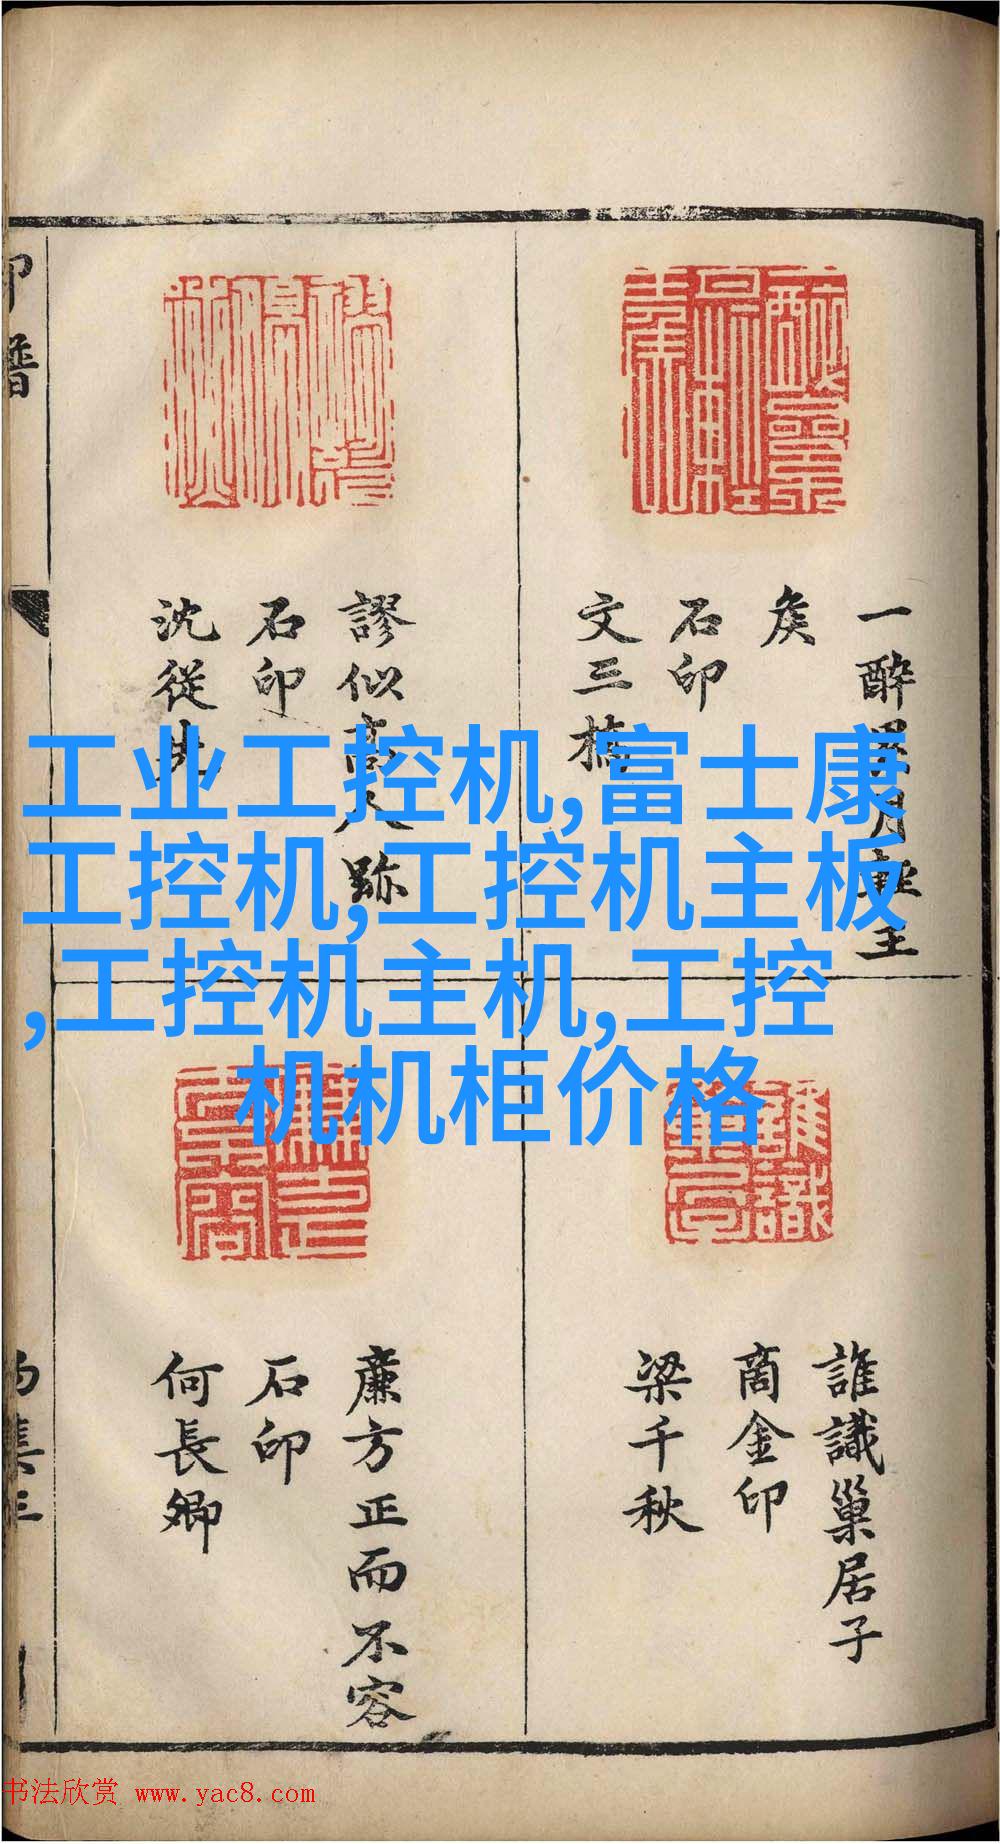 一醉累月輕王
矦
石印
文三橋
謬似高人跡
石印
沈從先
工业工控机,富士康
工控机,工控机主板
,工控机主机,工控
机机柜价格
誰識巢居子
商金印
梁千秋
廉方正而不容
石印
何長卿
印譜
書法欣赏 www.yac8.com